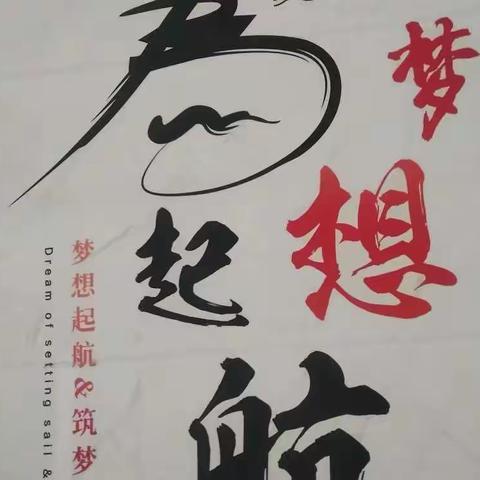 为
梦
想
起
航
梦想起航&筑梦
Dream of setting sail &